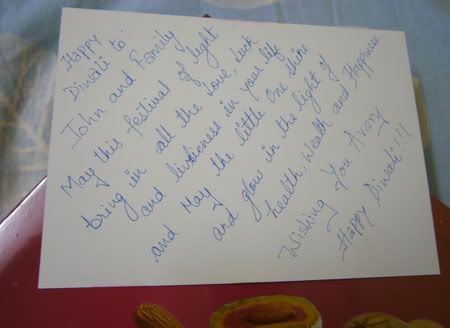 Happy
Diwali to
John and Family
May this festival of light
bring in all the love, luck
and liveliness in your life
and May the little One shine
and glow in the light of
health, Wealth and Happiness
Wishing You A Very
Happy Diwali!!!